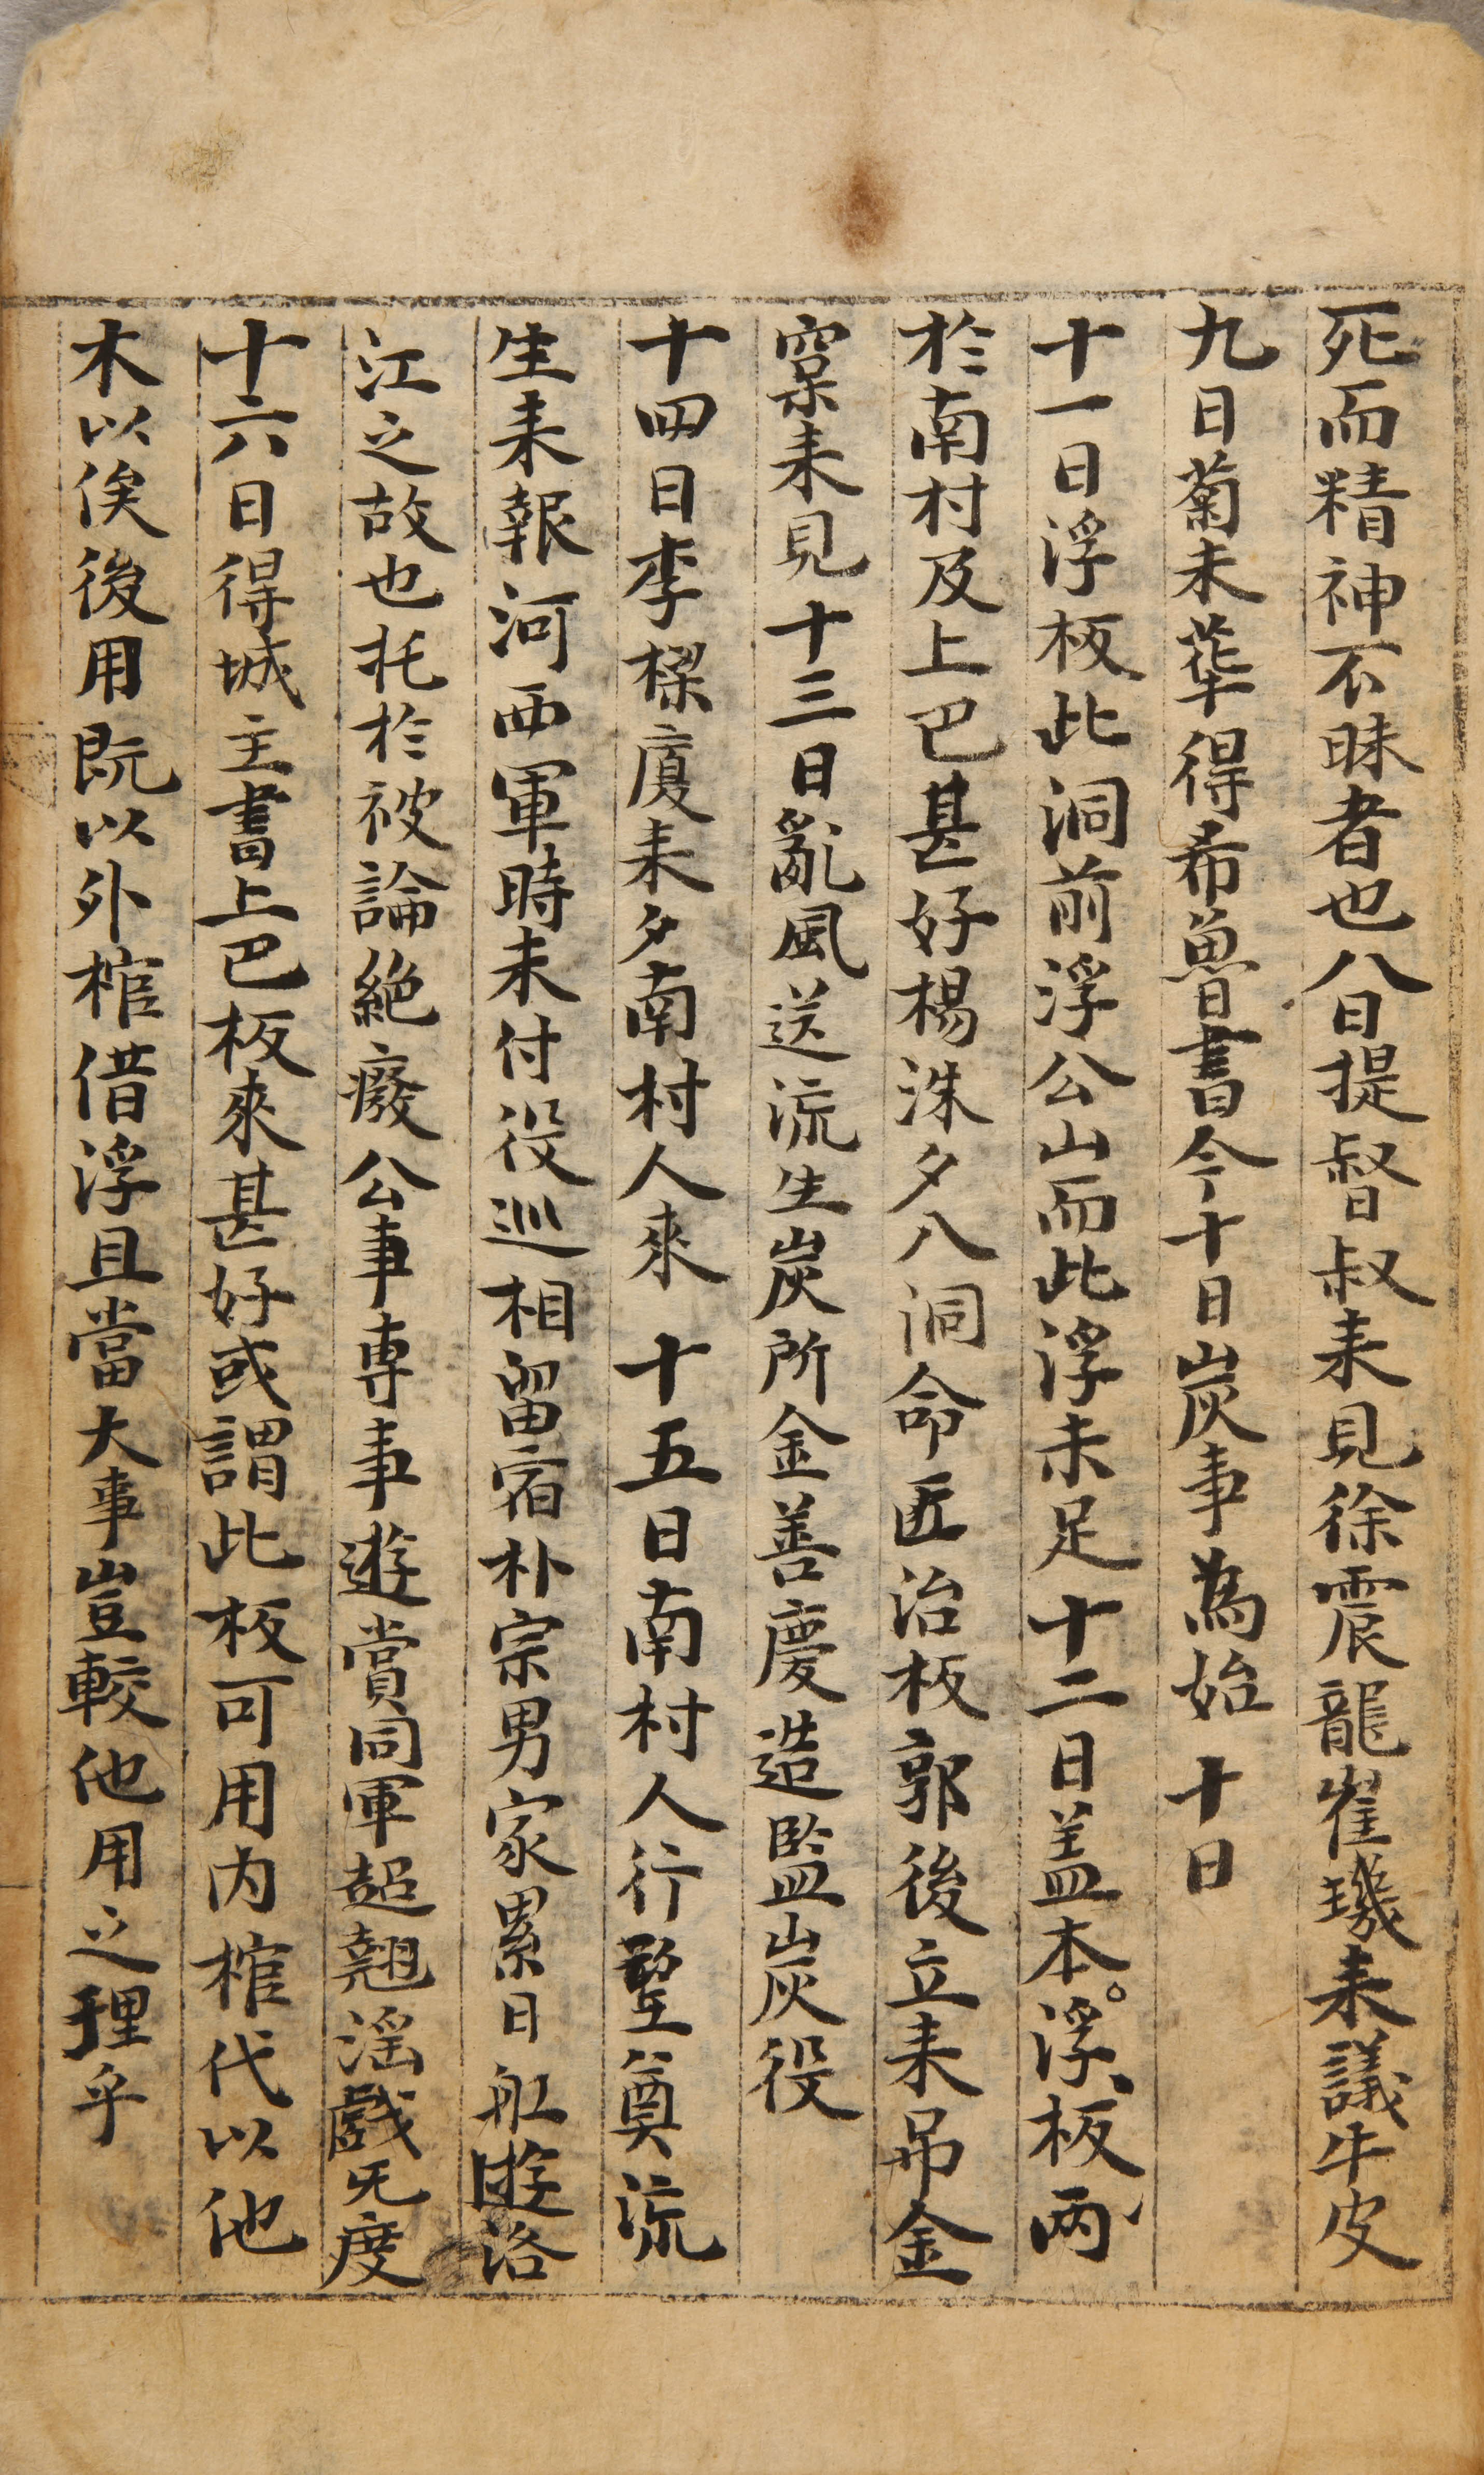 死而精神不昧者也八日提督叔来見徐震龍崔璣来議牛皮
九日菊未華得希魯書今十日炭事為始 十日
十一日浮板此洞前浮公山而此浮未足十二日盖本。浮板两
於南村及上巴甚好楊洙夕八洞命匠治板郭後立来吊金
窠来見十三日亂風送流生炭所金善慶造監炭役
十四日李樑廈来夕南村人來 十五日南村人行墍奠流
生来報河西軍時未付役巡相留宿朴宗男家累日舡遊洛
江之故也托於被論絶癈公事專事遊賞同軍超翹滛戯无度
十六日得城主書上巴板來甚好或謂此板可用内棺代以他
木以俟後用既以外棺借浮且當大事豈較他用之理乎